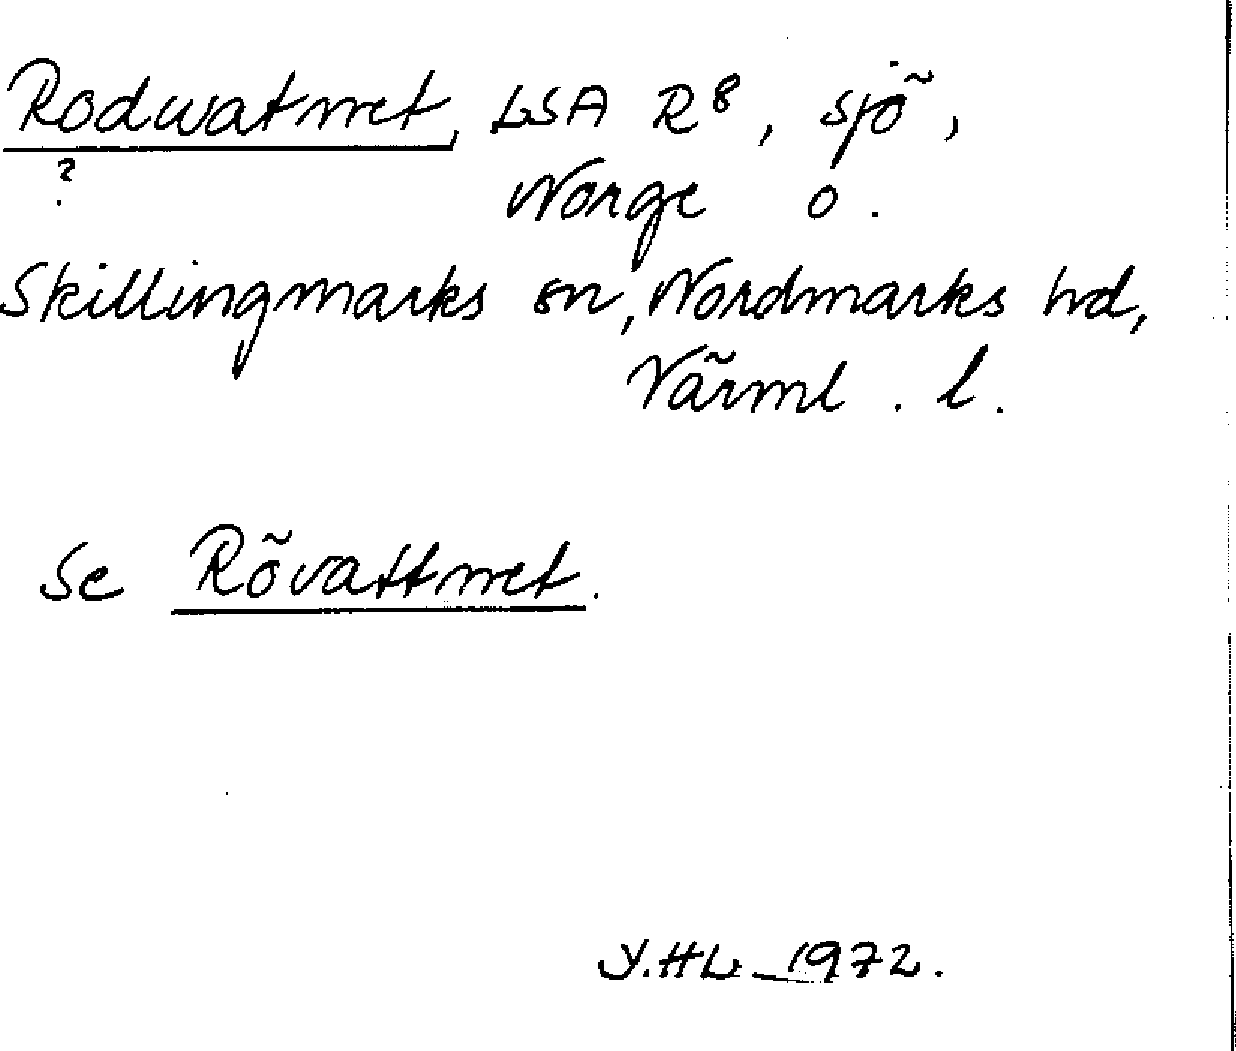 Rodwatnet, LSA R⁸, sjö,
? Norge o.
Skillingmarks sn, Nordmarks hd,
Värml. l.
Se Rövattnet.
Y.HL. 1972.